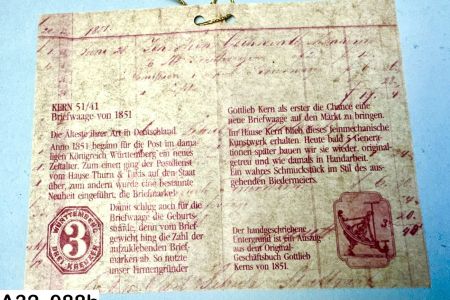 1851.
KERN 51/41
Briefwaage von 1851
Die Älteste ihrer Art in Deutschland
Anno 1851 begann für die Post im dama-
ligen Königreich Württemberg ein neues
Zeitalter. Zum einen ging der Postdienst
vom Hause Thurn & Taxis auf den Staat
über, zum andern wurde eine bestannte
Neuheit eingeführt, die Briefmarke
Damit schlug auch für die
Briefwaage die Geburts-
stunde, denn vom Brief
gewicht hing die Zahl der
aufzuklebenden Brief-
marken ab. So nutzte
unser Firmengründer
WÜRTTEMBERG
3
DREI KREUZER
Gottlieb Kern als erster die Chance eine
neue Briefwaage auf den Markt zu bringen.
Im Hause Kern blieb dieses feinmechanische
Kunstwerk erhalten. Heute bald 5 Genera-
tionen später bauen wir sie wieder, original-
getreu und wie damals in Handarbeit.
Ein wahres Schmuckstück im Stil des aus-
gehenden Biedermeiers.
Der handgeschriebene
Untergrund ist ein Auszug
aus dem Original-
Geschäftsbuch Gottlieb
Kerns von 1851.
A32-088b